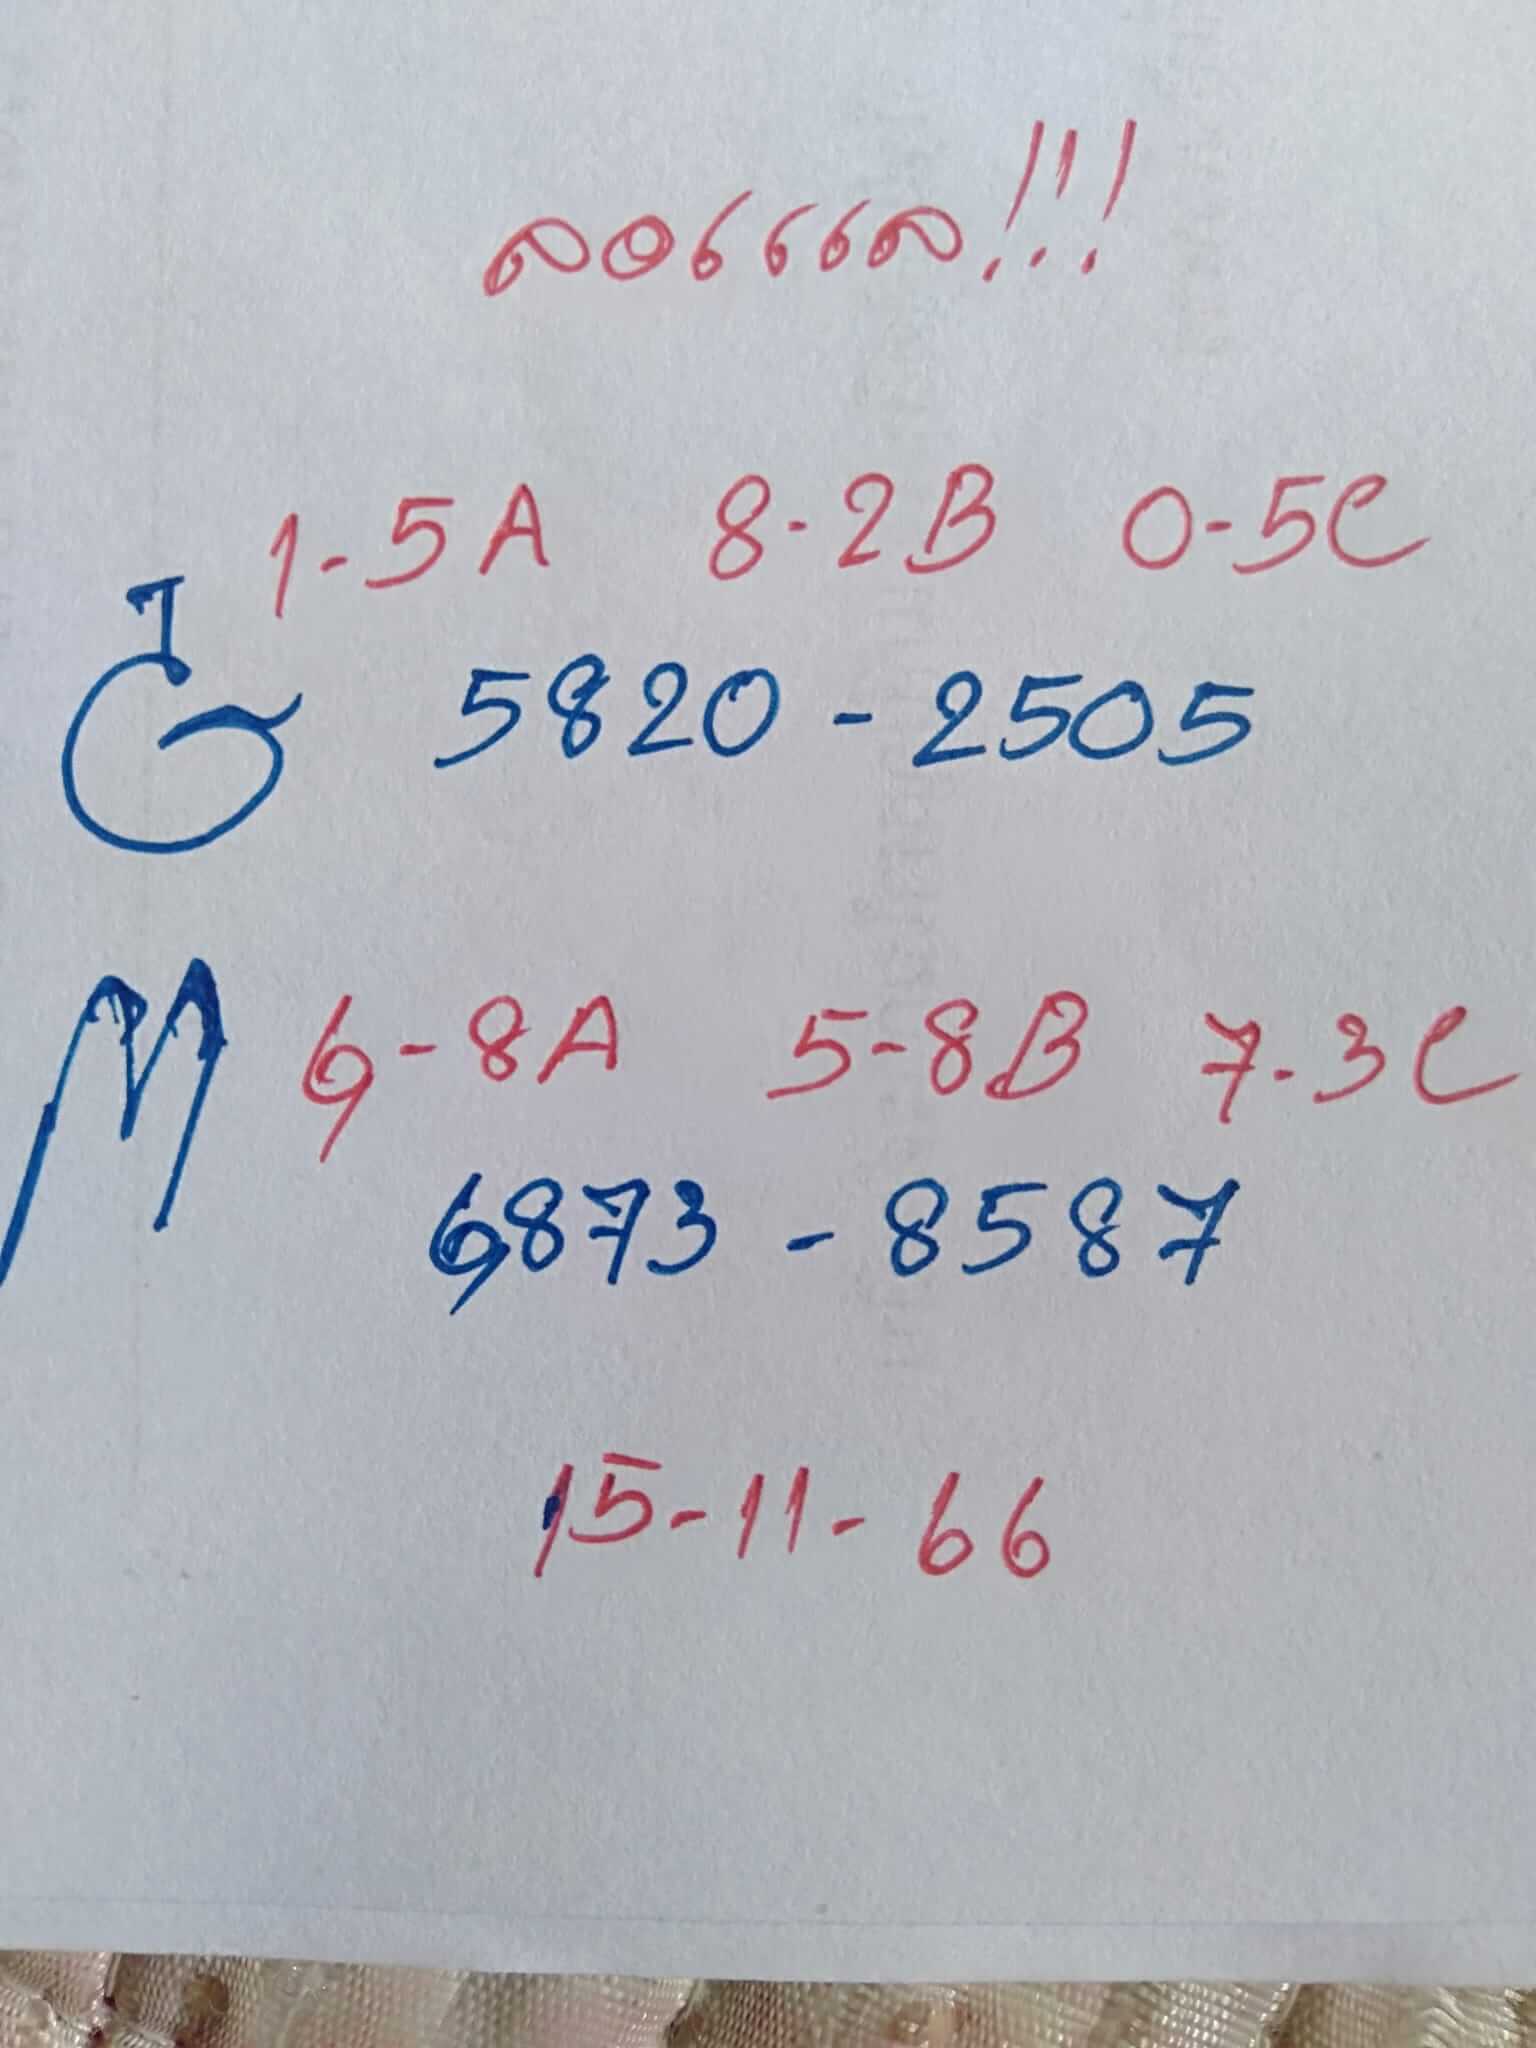 ลอเเเล!!!
1-5A 8-2B 0-5C
G 5820 - 2505
M 6-8A 5-8B 7-3C
6873 - 8587
15-11-66